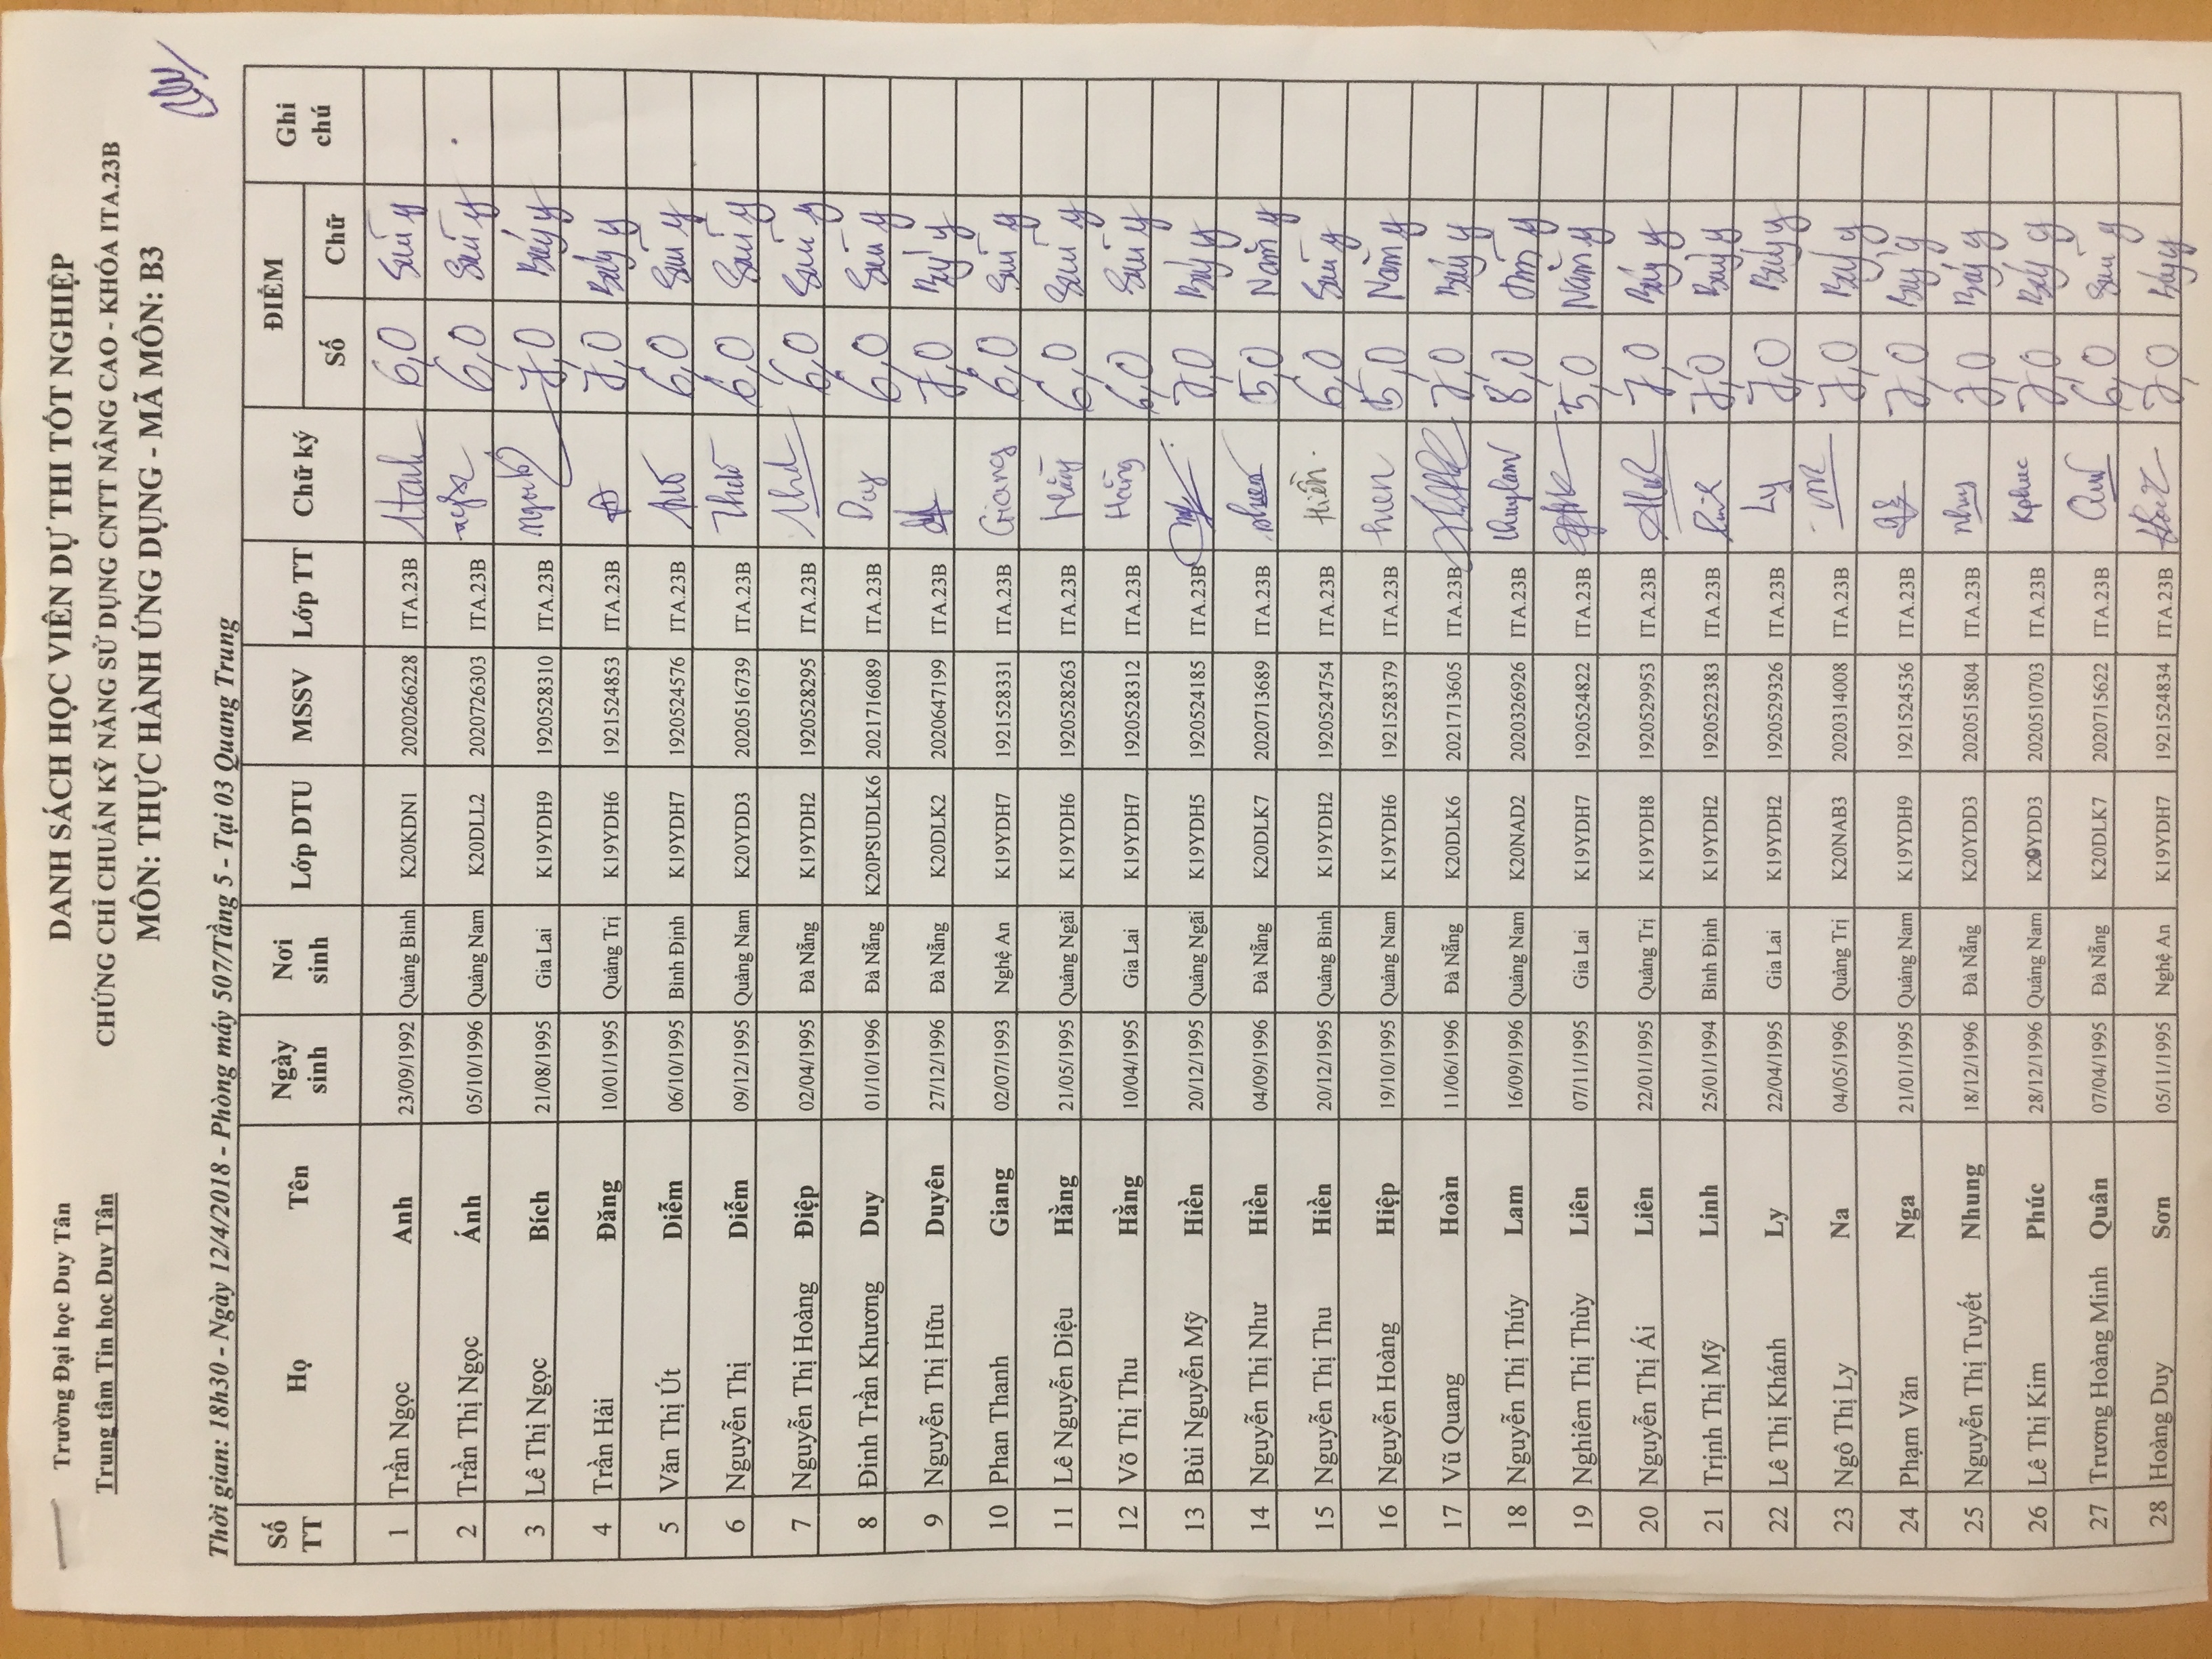 Trường Đại học Duy Tân
Trung tâm Tin học Duy Tân
DANH SÁCH HỌC VIÊN DỰ THI TỐT NGHIỆP
CHỨNG CHỈ CHUẨN KỸ NĂNG SỬ DỤNG CNTT NÂNG CAO - KHÓA ITA.23B
MÔN: THỰC HÀNH ỨNG DỤNG - MÃ MÔN: B3
Thời gian: 18h30 - Ngày 12/4/2018 - Phòng máy 507/Tầng 5 - Tại 03 Quang Trung
Số TT Họ Tên Ngày sinh Nơi sinh Lớp DTU MSSV Lớp TT Chữ ký ĐIỂM Số Chữ Ghi chú
1 Trần Ngọc Anh 23/09/1992 Quảng Bình K20KDN1 2020266228 ITA.23B 6,0 Sáu y
2 Trần Thị Ngọc Ánh 05/10/1996 Quảng Nam K20DLL2 2020726303 ITA.23B 6,0 Sáu y
3 Lê Thị Ngọc Bích 21/08/1995 Gia Lai K19YDH9 1920528310 ITA.23B 7,0 Bảy y
4 Trần Hải Đăng 10/01/1995 Quảng Trị K19YDH6 1921524853 ITA.23B 7,0 Bảy y
5 Văn Thị Út Diễm 06/10/1995 Bình Định K19YDH7 1920524576 ITA.23B 6,0 Sáu y
6 Nguyễn Thị Diễm 09/12/1995 Quảng Nam K20YDD3 2020516739 ITA.23B 6,0 Sáu y
7 Nguyễn Thị Hoàng Điệp 02/04/1995 Đà Nẵng K19YDH2 1920528295 ITA.23B 6,0 Sáu y
8 Đinh Trần Khương Duy 01/10/1996 Đà Nẵng K20PSUDLK6 2021716089 ITA.23B Duy 6,0 Sáu y
9 Nguyễn Thị Hữu Duyên 27/12/1996 Đà Nẵng K20DLK2 2020647199 ITA.23B 7,0 Bảy y
10 Phan Thanh Giang 02/07/1993 Nghệ An K19YDH7 1921528331 ITA.23B Giang 6,0 Sáu y
11 Lê Nguyễn Diệu Hằng 21/05/1995 Quảng Ngãi K19YDH6 1920528263 ITA.23B Hằng 6,0 Sáu y
12 Võ Thị Thu Hằng 10/04/1995 Gia Lai K19YDH7 1920528312 ITA.23B Hằng 6,0 Sáu y
13 Bùi Nguyễn Mỹ Hiền 20/12/1995 Quảng Ngãi K19YDH5 1920524185 ITA.23B 7,0 Bảy y
14 Nguyễn Thị Như Hiền 04/09/1996 Đà Nẵng K20DLK7 2020713689 ITA.23B 5,0 Năm y
15 Nguyễn Thị Thu Hiền 20/12/1995 Quảng Bình K19YDH2 1920524754 ITA.23B Hiền. 6,0 Sáu y
16 Nguyễn Hoàng Hiệp 19/10/1995 Quảng Nam K19YDH6 1921528379 ITA.23B 5,0 Năm y
17 Vũ Quang Hoàn 11/06/1996 Đà Nẵng K20DLK6 2021713605 ITA.23B 7,0 Bảy y
18 Nguyễn Thị Thúy Lam 16/09/1996 Quảng Nam K20NAD2 2020326926 ITA.23B 8,0 Tám y
19 Nghiêm Thị Thùy Liên 07/11/1995 Gia Lai K19YDH7 1920524822 ITA.23B 5,0 Năm y
20 Nguyễn Thị Ái Liên 22/01/1995 Quảng Trị K19YDH8 1920529953 ITA.23B 7,0 Bảy y
21 Trịnh Thị Mỹ Linh 25/01/1994 Bình Định K19YDH2 1920522383 ITA.23B 7,0 Bảy y
22 Lê Thị Khánh Ly 22/04/1995 Gia Lai K19YDH2 1920529326 ITA.23B Ly 7,0 Bảy y
23 Ngô Thị Ly Na 04/05/1996 Quảng Trị K20NAB3 2020314008 ITA.23B 7,0 Bảy y
24 Phạm Văn Nga 21/01/1995 Quảng Nam K19YDH9 1921524536 ITA.23B 7,0 Bảy y
25 Nguyễn Thị Tuyết Nhung 18/12/1996 Đà Nẵng K20YDD3 2020515804 ITA.23B 7,0 Bảy y
26 Lê Thị Kim Phúc 28/12/1996 Quảng Nam K20YDD3 2020510703 ITA.23B Kphuc 7,0 Bảy y
27 Trương Hoàng Minh Quân 07/04/1995 Đà Nẵng K20DLK7 2020715622 ITA.23B 6,0 Sáu y
28 Hoàng Duy Sơn 05/11/1995 Nghệ An K19YDH7 1921524834 ITA.23B 7,0 Bảy y